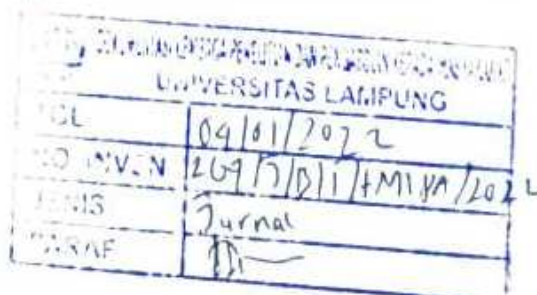 UNIVERSITAS LAMPUNG
TGL 04/01/2022
NO INVEN 269/J/B/I/FMIPA/2022
JENIS Jurnal
PARAF